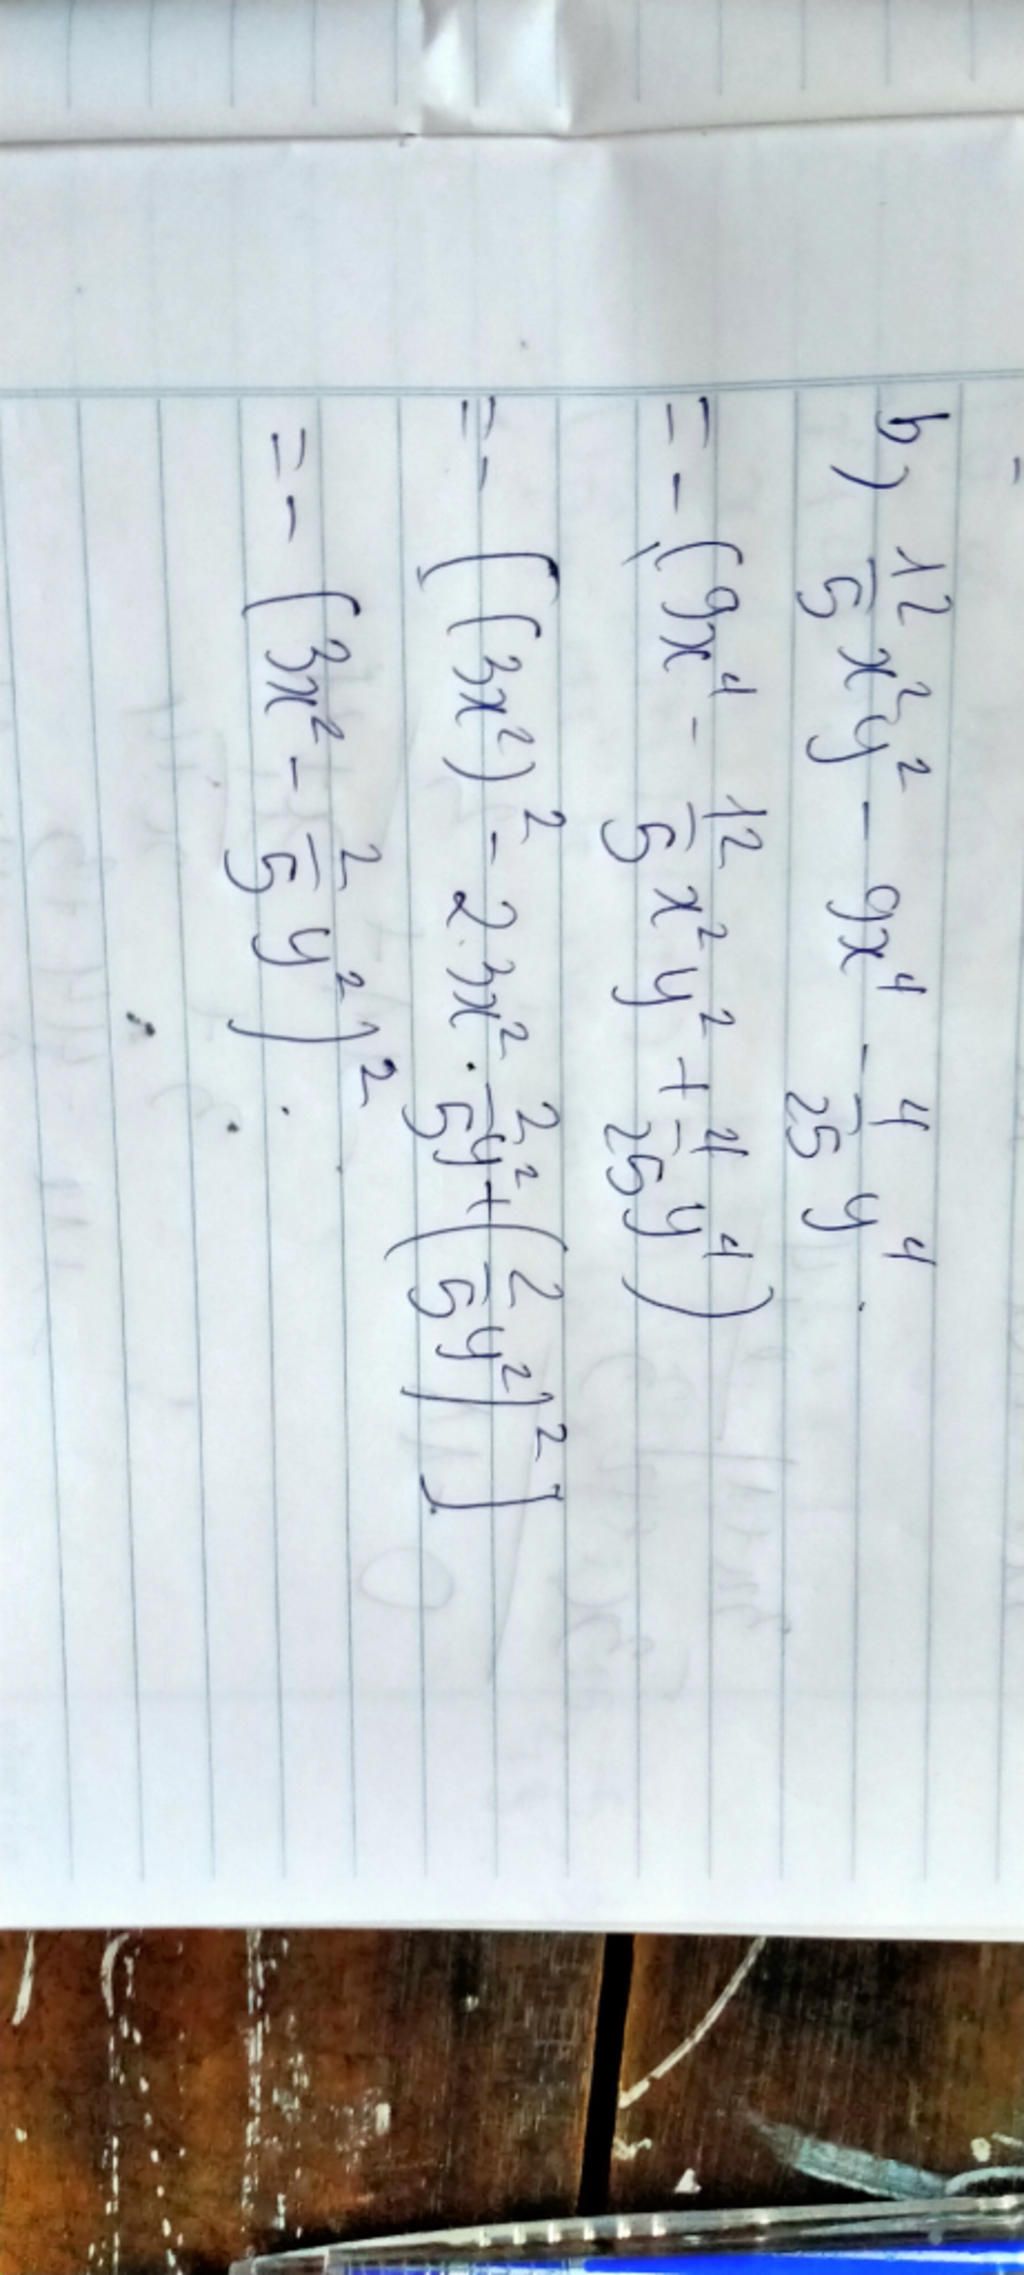 b) 12/5 x²y² - 9x⁴ - 4/25 y⁴
= - (9x⁴ - 12/5 x²y² + 4/25 y⁴)
= - [(3x²)² - 2.3x² . 2/5 y² + (2/5 y²)²]
= - (3x² - 2/5 y²)².